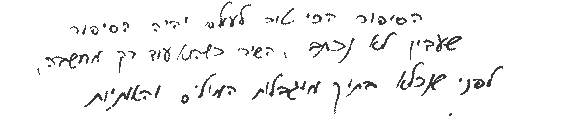 הסיפור הכי טוב לעולם יהיה הסיפור
שעדיין לא נכתב, השיר כשהוא עוד רק מחשבה,
לפני שנכלא בתוך מיגבלות המילים והאותיות